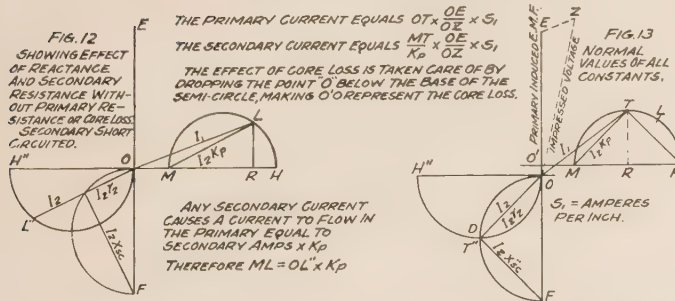 FIG.12
SHOWING EFFECT
OF REACTANCE
AND SECONDARY
RESISTANCE WITH-
OUT PRIMARY RE-
SISTANCE OR CORE LOSS.
SECONDARY SHORT
CIRCUITED.
THE PRIMARY CURRENT EQUALS OT × OE/OZ × S₁
THE SECONDARY CURRENT EQUALS MT/Kp × OE/OZ × S₁
THE EFFECT OF CORE LOSS IS TAKEN CARE OF BY
DROPPING THE POINT "O" BELOW THE BASE OF THE
SEMI-CIRCLE, MAKING O'O REPRESENT THE CORE LOSS.
E
H"
O
I₁
L
I₂Kp
M
R
H
I₂
I₂r₂
L"
I₂Xsc
F
ANY SECONDARY CURRENT
CAUSES A CURRENT TO FLOW IN
THE PRIMARY EQUAL TO
SECONDARY AMPS × Kp
THEREFORE ML = OL" × Kp
FIG.13
NORMAL
VALUES OF ALL
CONSTANTS.
E
Z
PRIMARY INDUCED E.M.F.
IMPRESSED VOLTAGE
T
L
I₁
I₂Kp
O'
O
M
R
H"
I₂
I₂r₂
D
T"
I₂Xsc
F
S₁ = AMPERES
PER INCH.